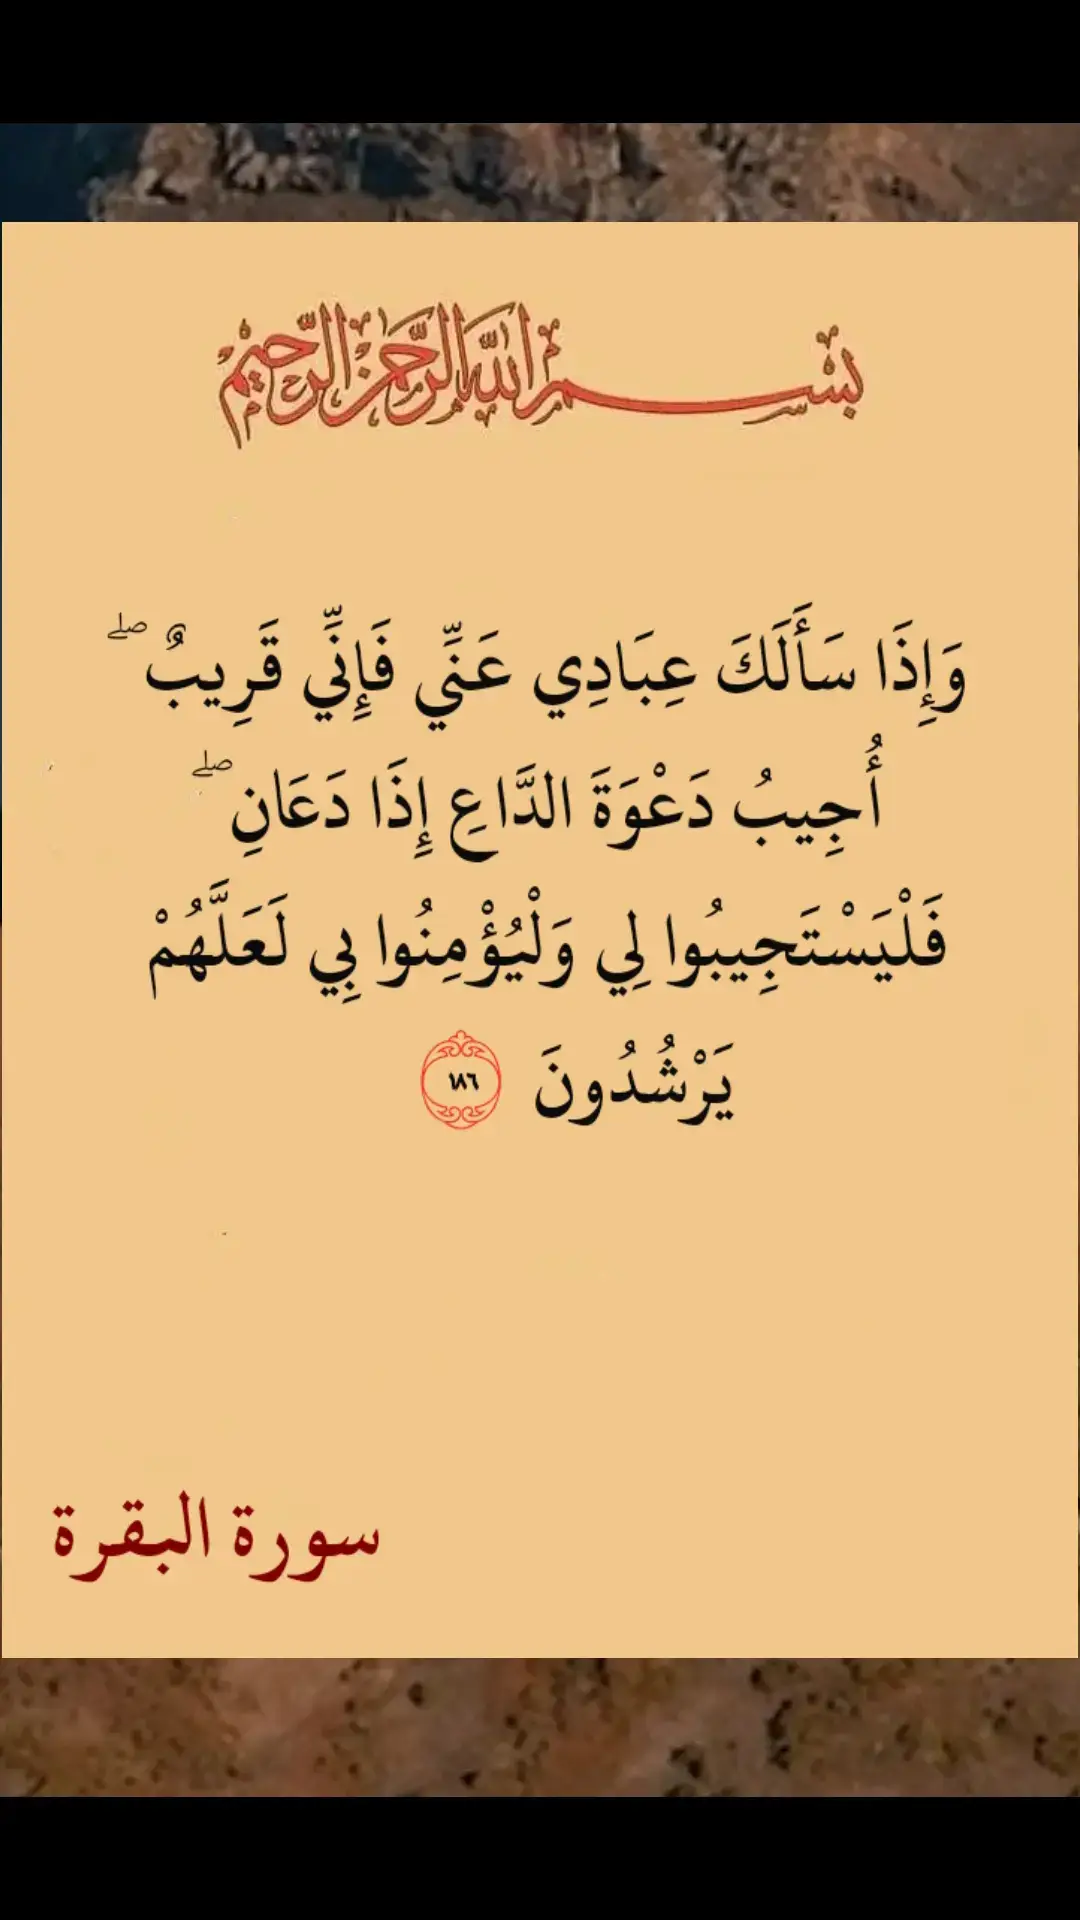 بسم الله الرحمن الرحيم
وَإِذَا سَأَلَكَ عِبَادِي عَنِّي فَإِنِّي قَرِيبٌ ۖ
أُجِيبُ دَعْوَةَ الدَّاعِ إِذَا دَعَانِ ۖ
فَلْيَسْتَجِيبُوا لِي وَلْيُؤْمِنُوا بِي لَعَلَّهُمْ
يَرْشُدُونَ ١٨٦
سورة البقرة